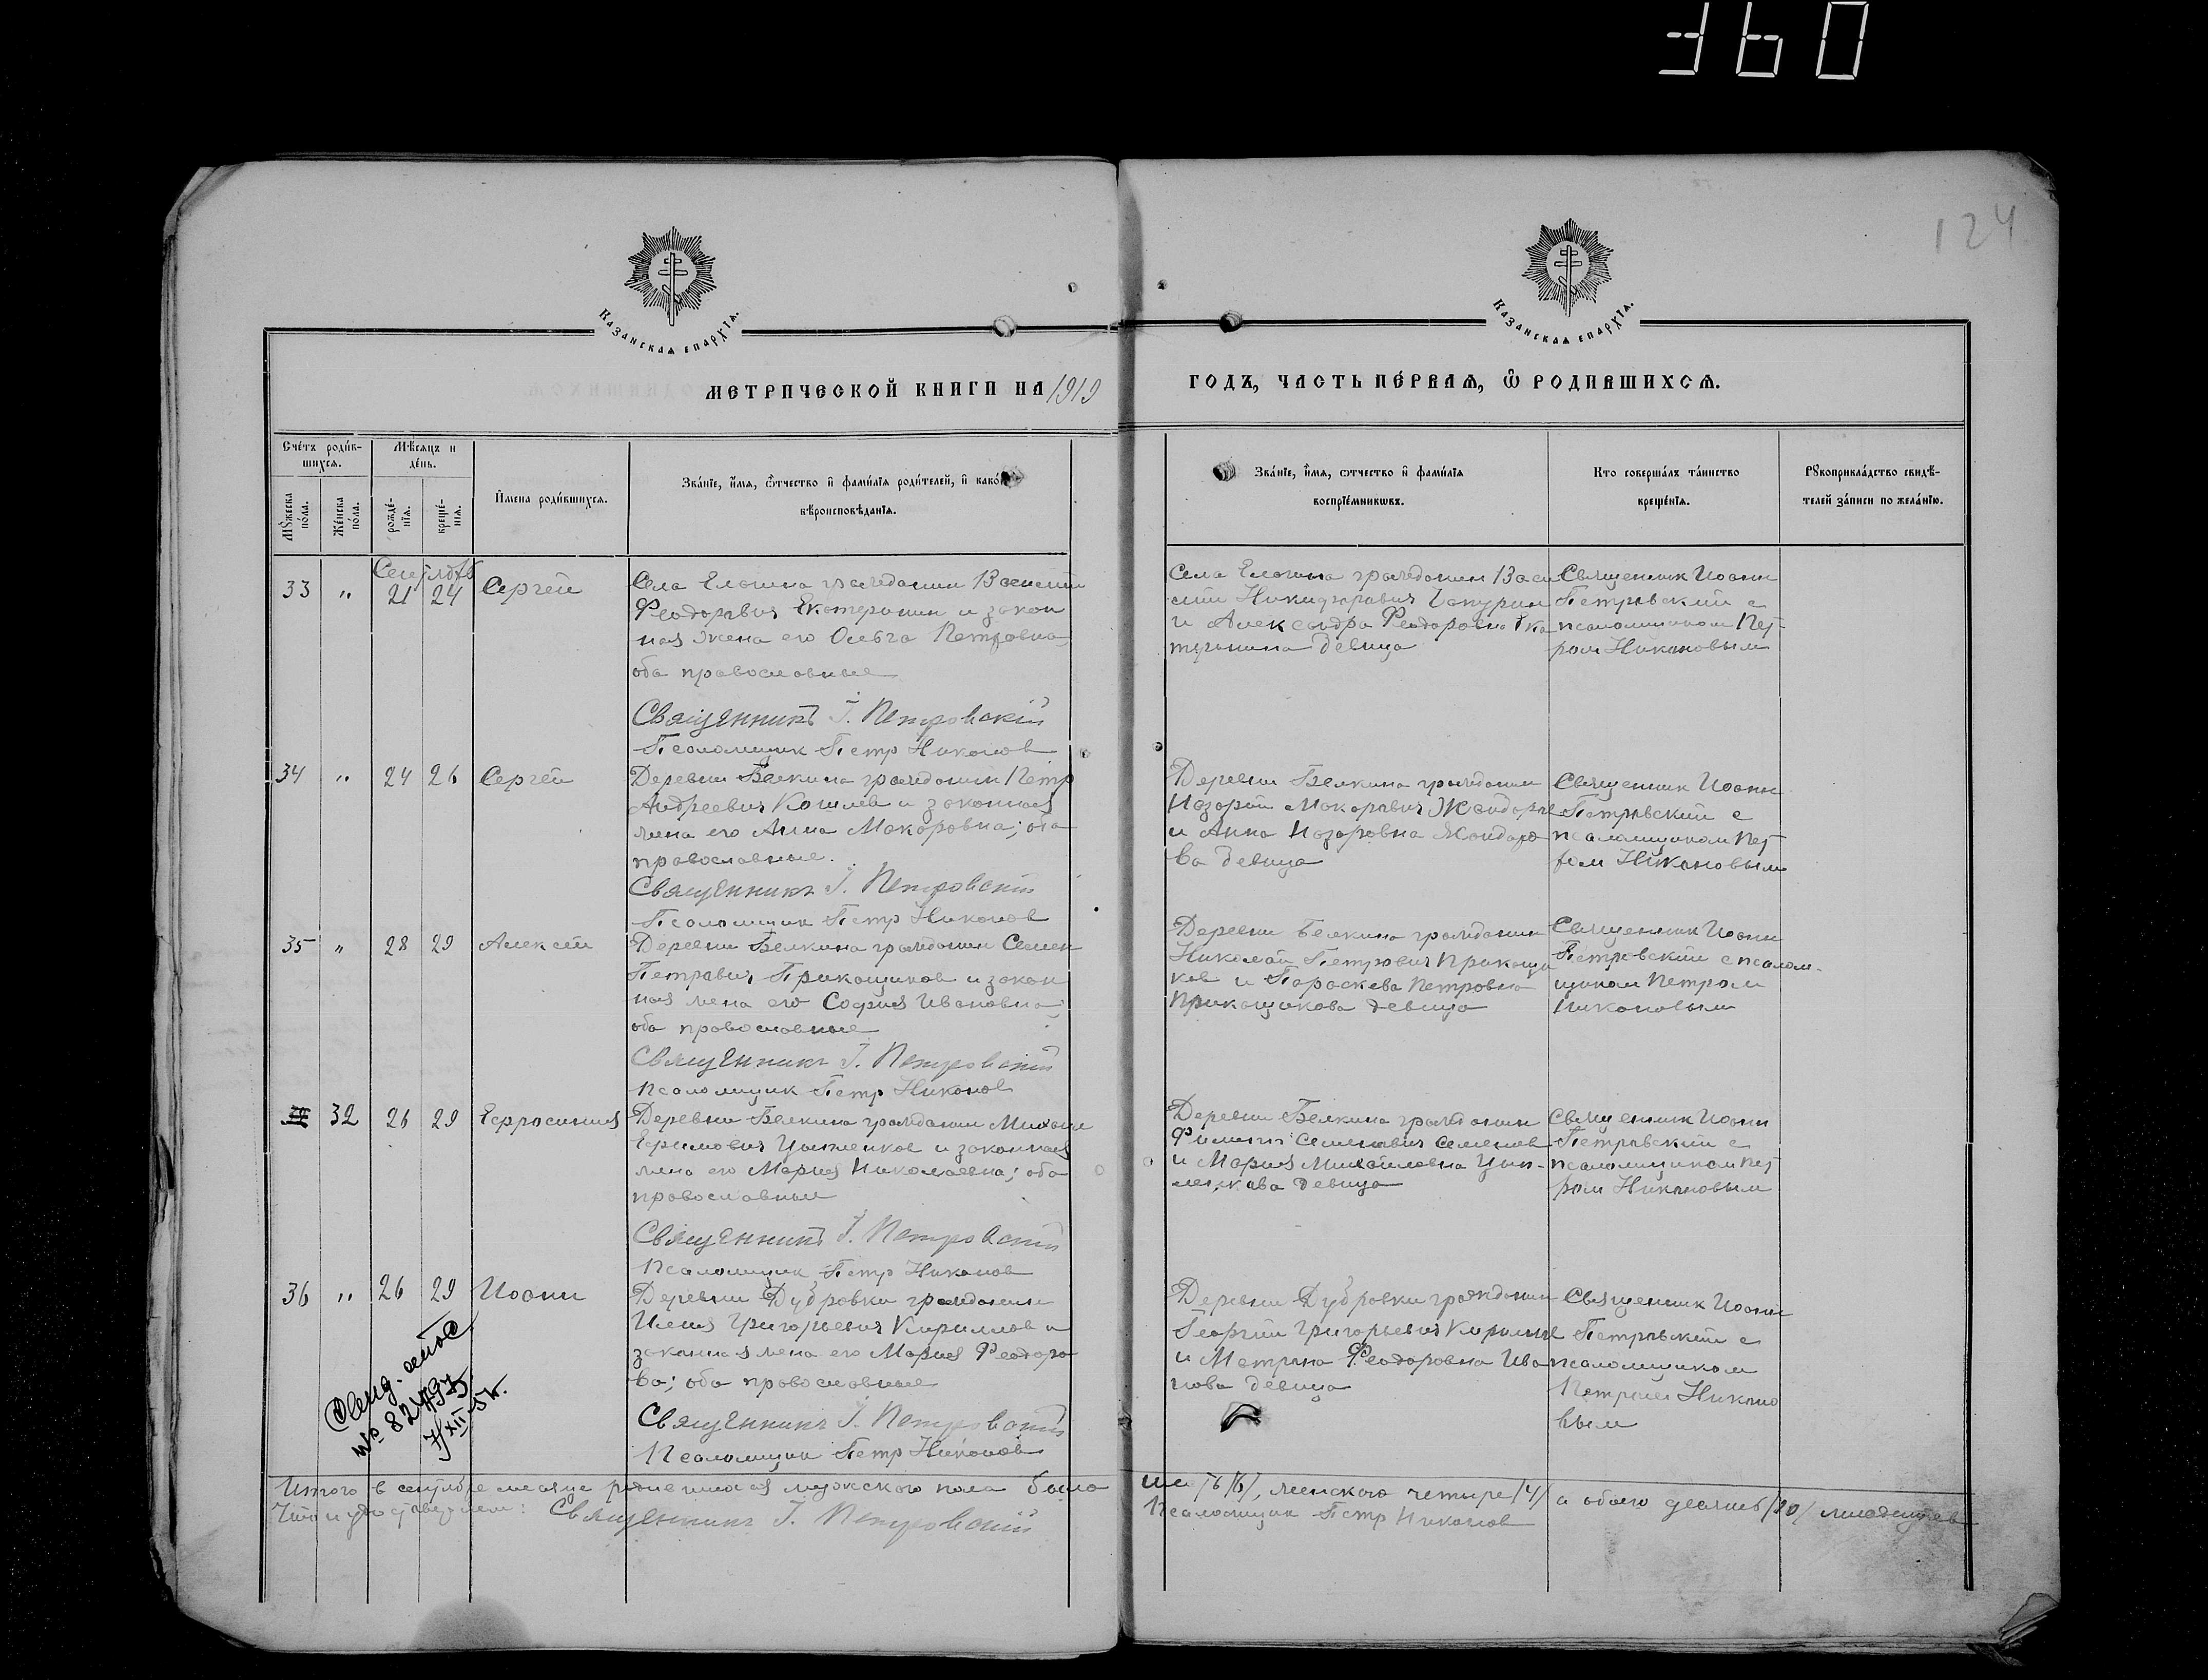 360
124
Казанская епархїѧ.
Казанская епархїѧ.
МЕТРИЧЕСКОЙ КНИГИ НА 1919
ГОДЪ, ЧАСТЬ ПЕ́РВАѦ, Ѿ РОДИВШИХСѦ.
Сче́тъ роди́в-
шихсѧ.
Мѣ́сѧцъ и
де́нь.
Мꙋ́жеска
по́ла.
Же́нска
по́ла.
рожде́-
нїѧ.
креще́-
нїѧ.
И҆мена роди́вшихсѧ.
Зва́нїе, и҆́мѧ, ѻ҆́тчество и҆ фами́лїѧ роди́телей, и҆ како́
вѣроисповѣ́данїѧ.
Зва́нїе, и҆́мѧ, ѻ҆тчество и҆ фами́лїѧ
воспрїе́мникѡвъ.
Кто совершáлъ тáинство
креще́нїѧ.
Рꙋкоприклáдство свидѣ́-
телей зáписи по желáнїю.
Сентябрь
33 " 21 24 Сергей
Села гражданин Василий
Феодорович Екатеринин и закон
ная жена его Ольга Петровна
оба православные
Священникъ І. Петровскій
Псаломщик Петр Никонов
Села гражданин Васи
лий Никифорович
и Александра Феодоровна Ека
теринина девица
Священник Иоанн
Петровский с
псаломщиком Пет
ром Никоновым
34 " 24 26 Сергей
Деревни Белкина гражданин Петр
Андреевич Кошлев и законная
жена его Анна Макаровна; оба
православные.
Священникъ І. Петровскій
Псаломщик Петр Никонов
Деревни Белкина гражданин
Назарий Макарович
и Анна Назаровна Жандаро
ва девица
Священник Иоанн
Петровский с
псаломщиком Пет
ром Никоновым
35 " 28 29 Алексей
Деревни Белкина гражданин Семен
Петрович Прикащиков и закон
ная жена его София Ивановна
оба православные
Священникъ І. Петровскій
Псаломщик Петр Никонов
Деревни Белкина гражданин
Николай Петрович Прикащи
ков и Параскева Петровна
Прикащикова девица
Священник Иоанн
Петровский с псалом-
щиком Петром
Никоновым
32 26 29 Ефросиния
Деревни Белкина гражданин Михаил
Ефимович и законная
жена его Мария Николаевна; оба
православные
Священникъ І. Петровскій
Псаломщик Петр Никонов
Деревни Белкина гражданин
Филипп Семенович Семенов
и Мария Михайловна
девица
Священник Иоанн
Петровский с
псаломщиком Пет
ром Никоновым
36 " 26 29 Иоанн
Деревни Дубровки гражданин
Илия Григорьевич Кириллов и
законная жена его Мария Феодоро
ва; оба православные
Священникъ І. Петровскій
Псаломщик Петр Никонов
Деревни Дубровки гражданин
Георгий Григорьевич Кирилов
и Матрона Феодоровна Ива
нова девица
Священник Иоанн
Петровский с
псаломщиком
Петром Никоно
вым
Итого в сентябре месяце родившихся мужского пола было
/6/, женского четыре /4/ а обоего десять /10/ младенцев
Что и удостоверяем: Священникъ І. Петровскій
Псаломщик Петр Никонов